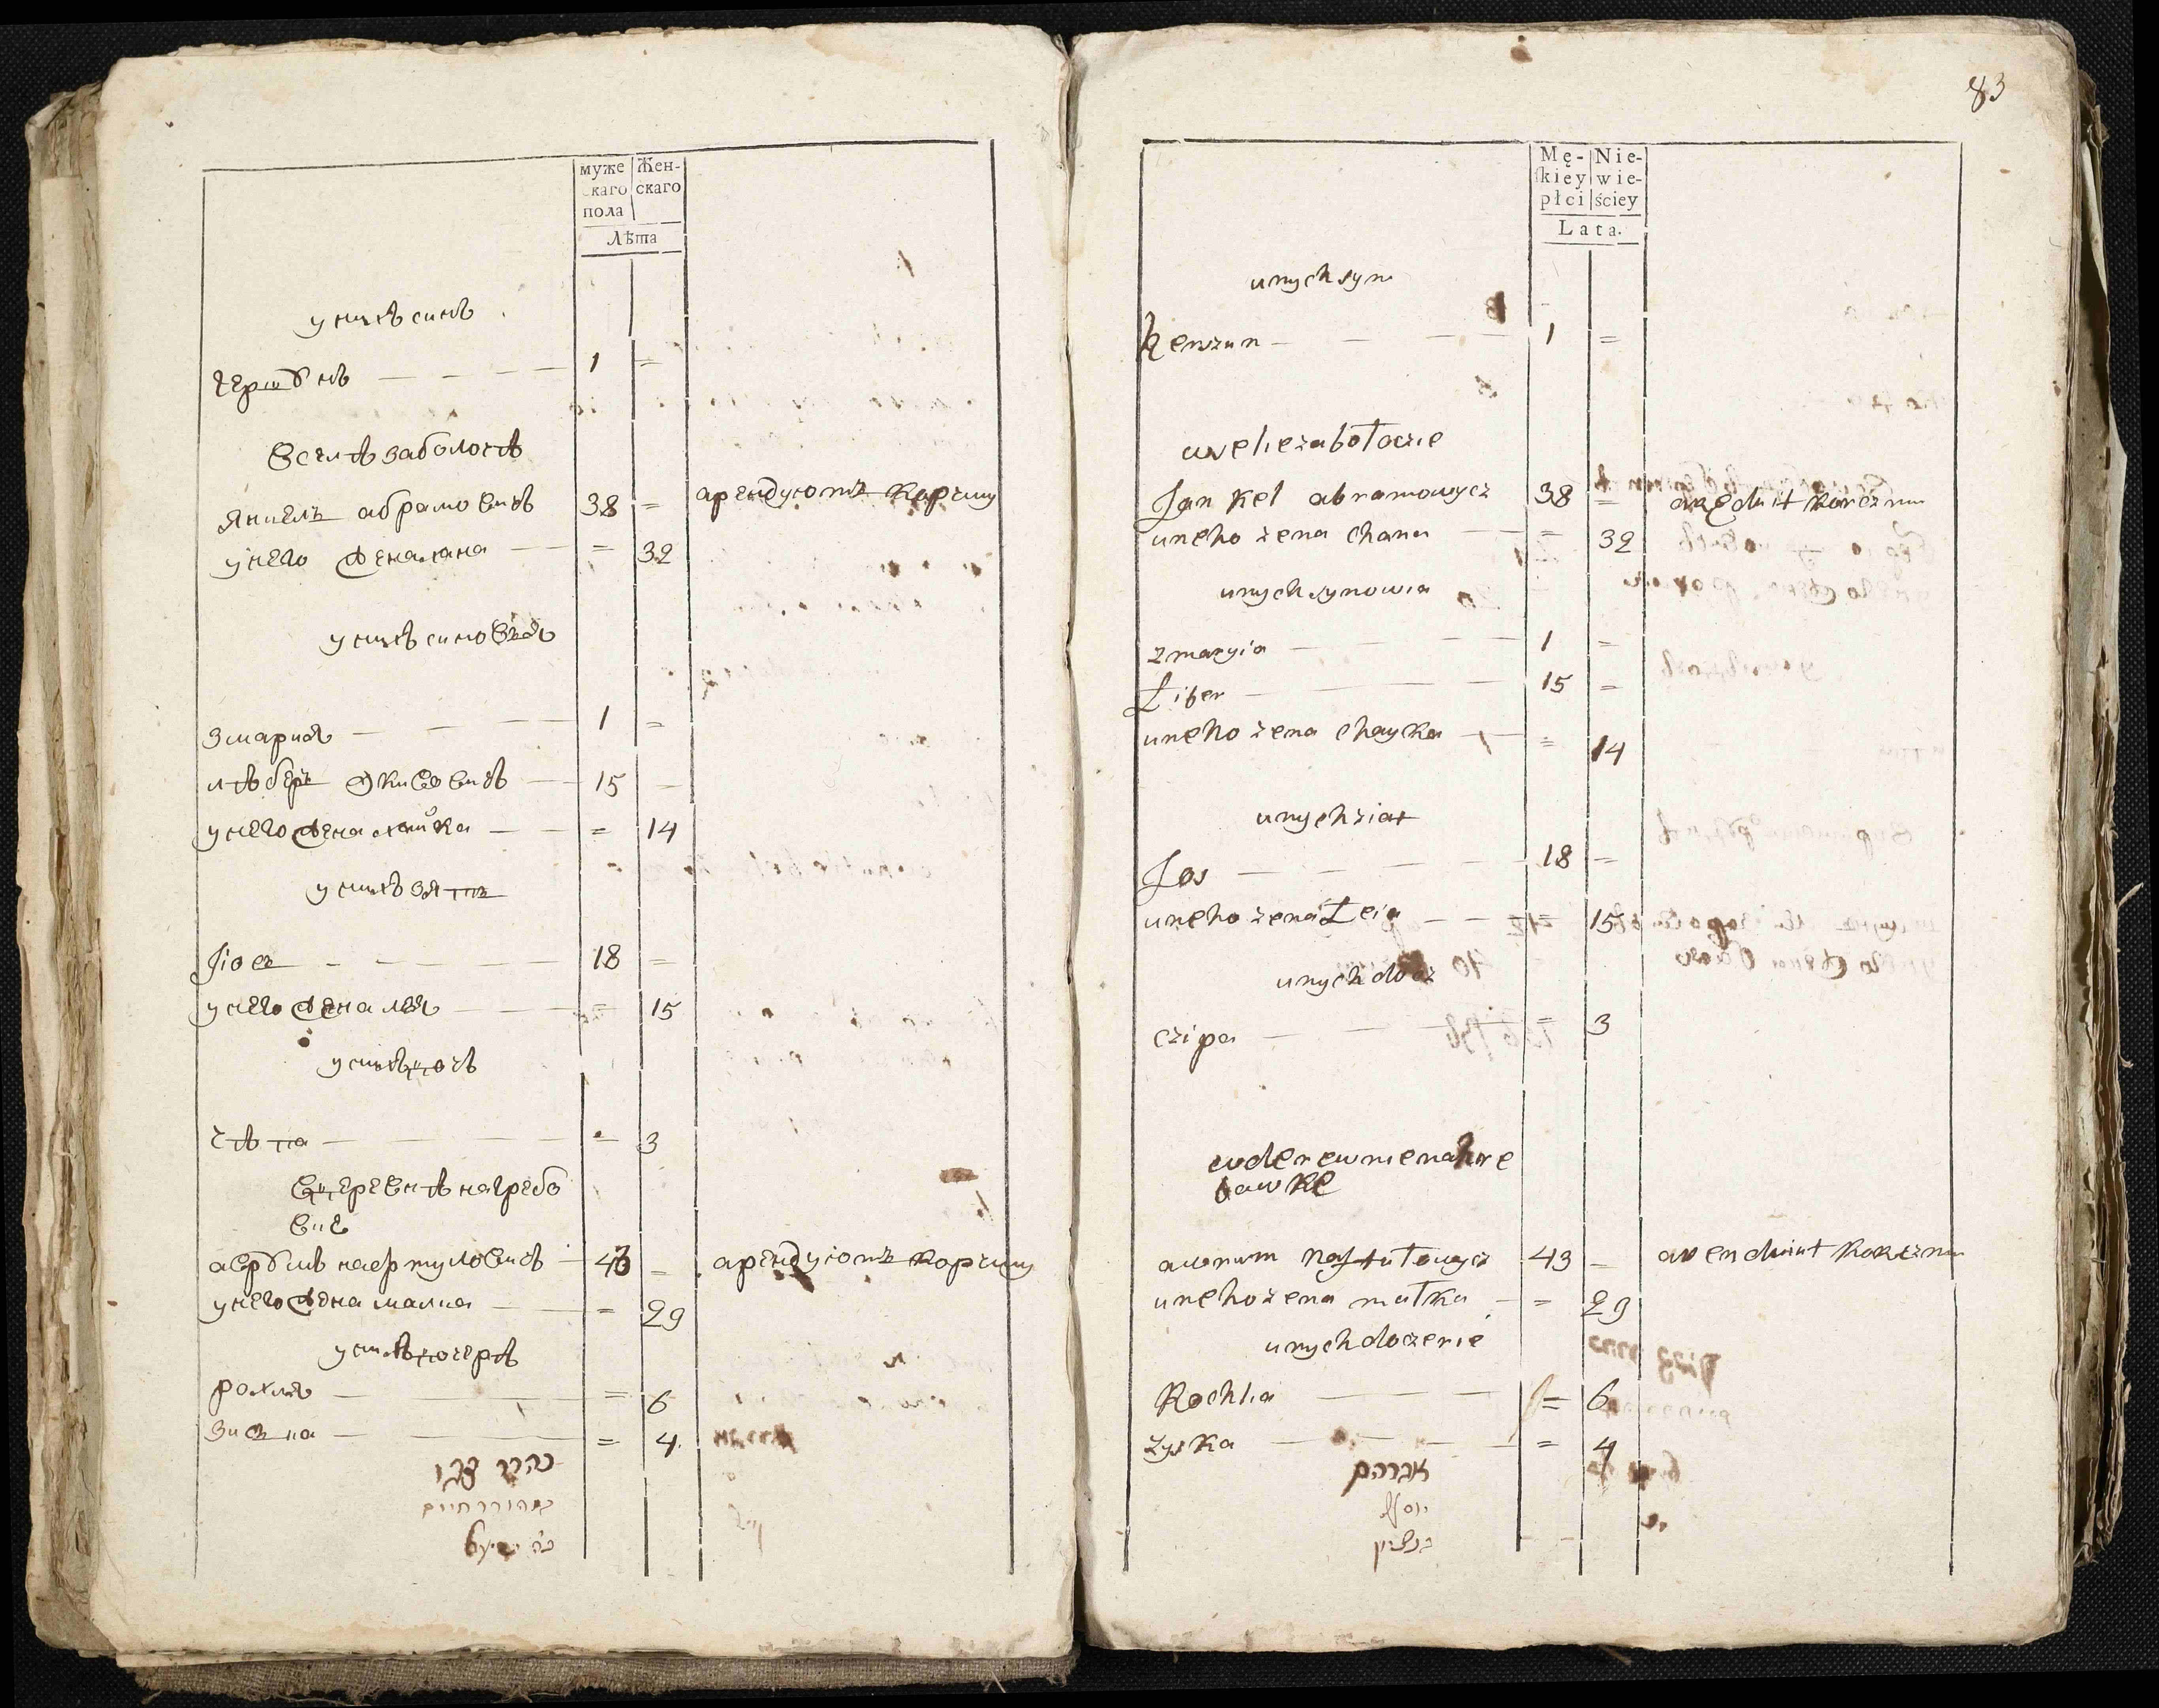 муже
скаго
пола
Жен-
скаго
Лѣта
у нихъ синъ
гершонъ 1 =
Вселѣ заболотѣ
янкель абрамовичъ 38 = арендуютъ корчму
унего жена хана = 32
у нихъ синовья
змария 1 =
лѣберъ 15 =
унего жена хайка = 14
у нихъ зять
Jiось 18 =
унего жена лея = 15
у нихъ дочъ
цѣпа = 3
Вдеревнѣ нагребо
арендуютъ корчму
43 =
унего жена малка = 29
у нихъ дочерѣ
рохля = 6
зиска = 4
83
Mę-
skiey
płci
Nie-
wie-
ściey
Lata.
unych syn
herszun 1 =
wseliezabołocie
Jankel abramowycz 38 = aręduit korczmu
uneho zena chana = 32
unych synowia
zmaryia 1 =
Liber 15 =
uneho zena chayka = 14
unych ziat
Jos 18 =
uneho zena Leia = 15
unych docz
czipa = 3
wderewnienahre
bawke
awrum 43 – arenduiut korczmu
uneho zena małka = 29
unych doczerie
Rochla = 6
zyska = 4
אברהם
יוסף